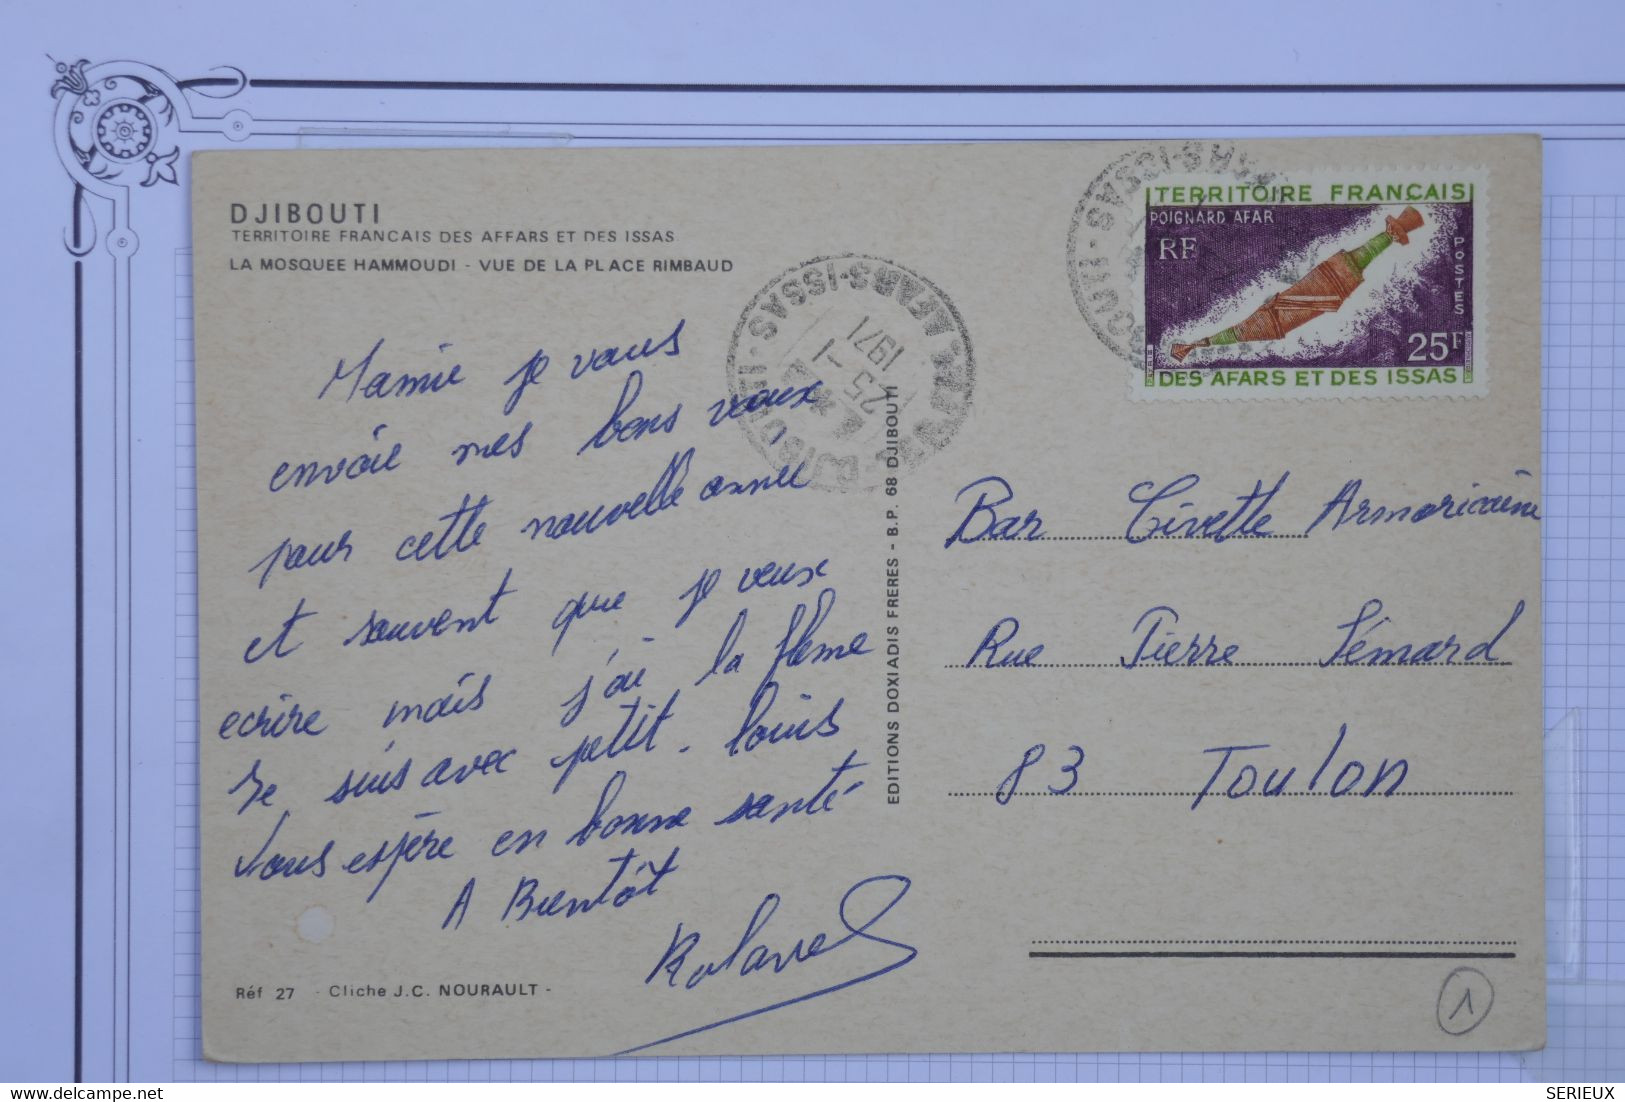 DJIBOUTI
TERRITOIRE FRANCAIS DES AFFARS ET DES ISSAS
LA MOSQUEE HAMMOUDI - VUE DE LA PLACE RIMBAUD
Mamie je vous
envoie mes bons voeux
pour cette nouvelle année
et souvent que je veux
ecrire mais j'ai la flème
Je suis avec petit-louis
Vous espère en bonne santé
A Bientôt
Roland
Réf 27 - Cliche J.C. NOURAULT -
EDITIONS DOXIADIS FRERES - B.P. 68 DJIBOUTI
DJIBOUTI
AFARS-ISSAS
25 -1
1971
TERRITOIRE FRANÇAIS
POIGNARD AFAR
RF
POSTES
25F
DES AFARS ET DES ISSAS
Bar Civette Armoricaine
Rue Pierre Sémard
83 Toulon
1
www.delcampe.net
SERIEUX